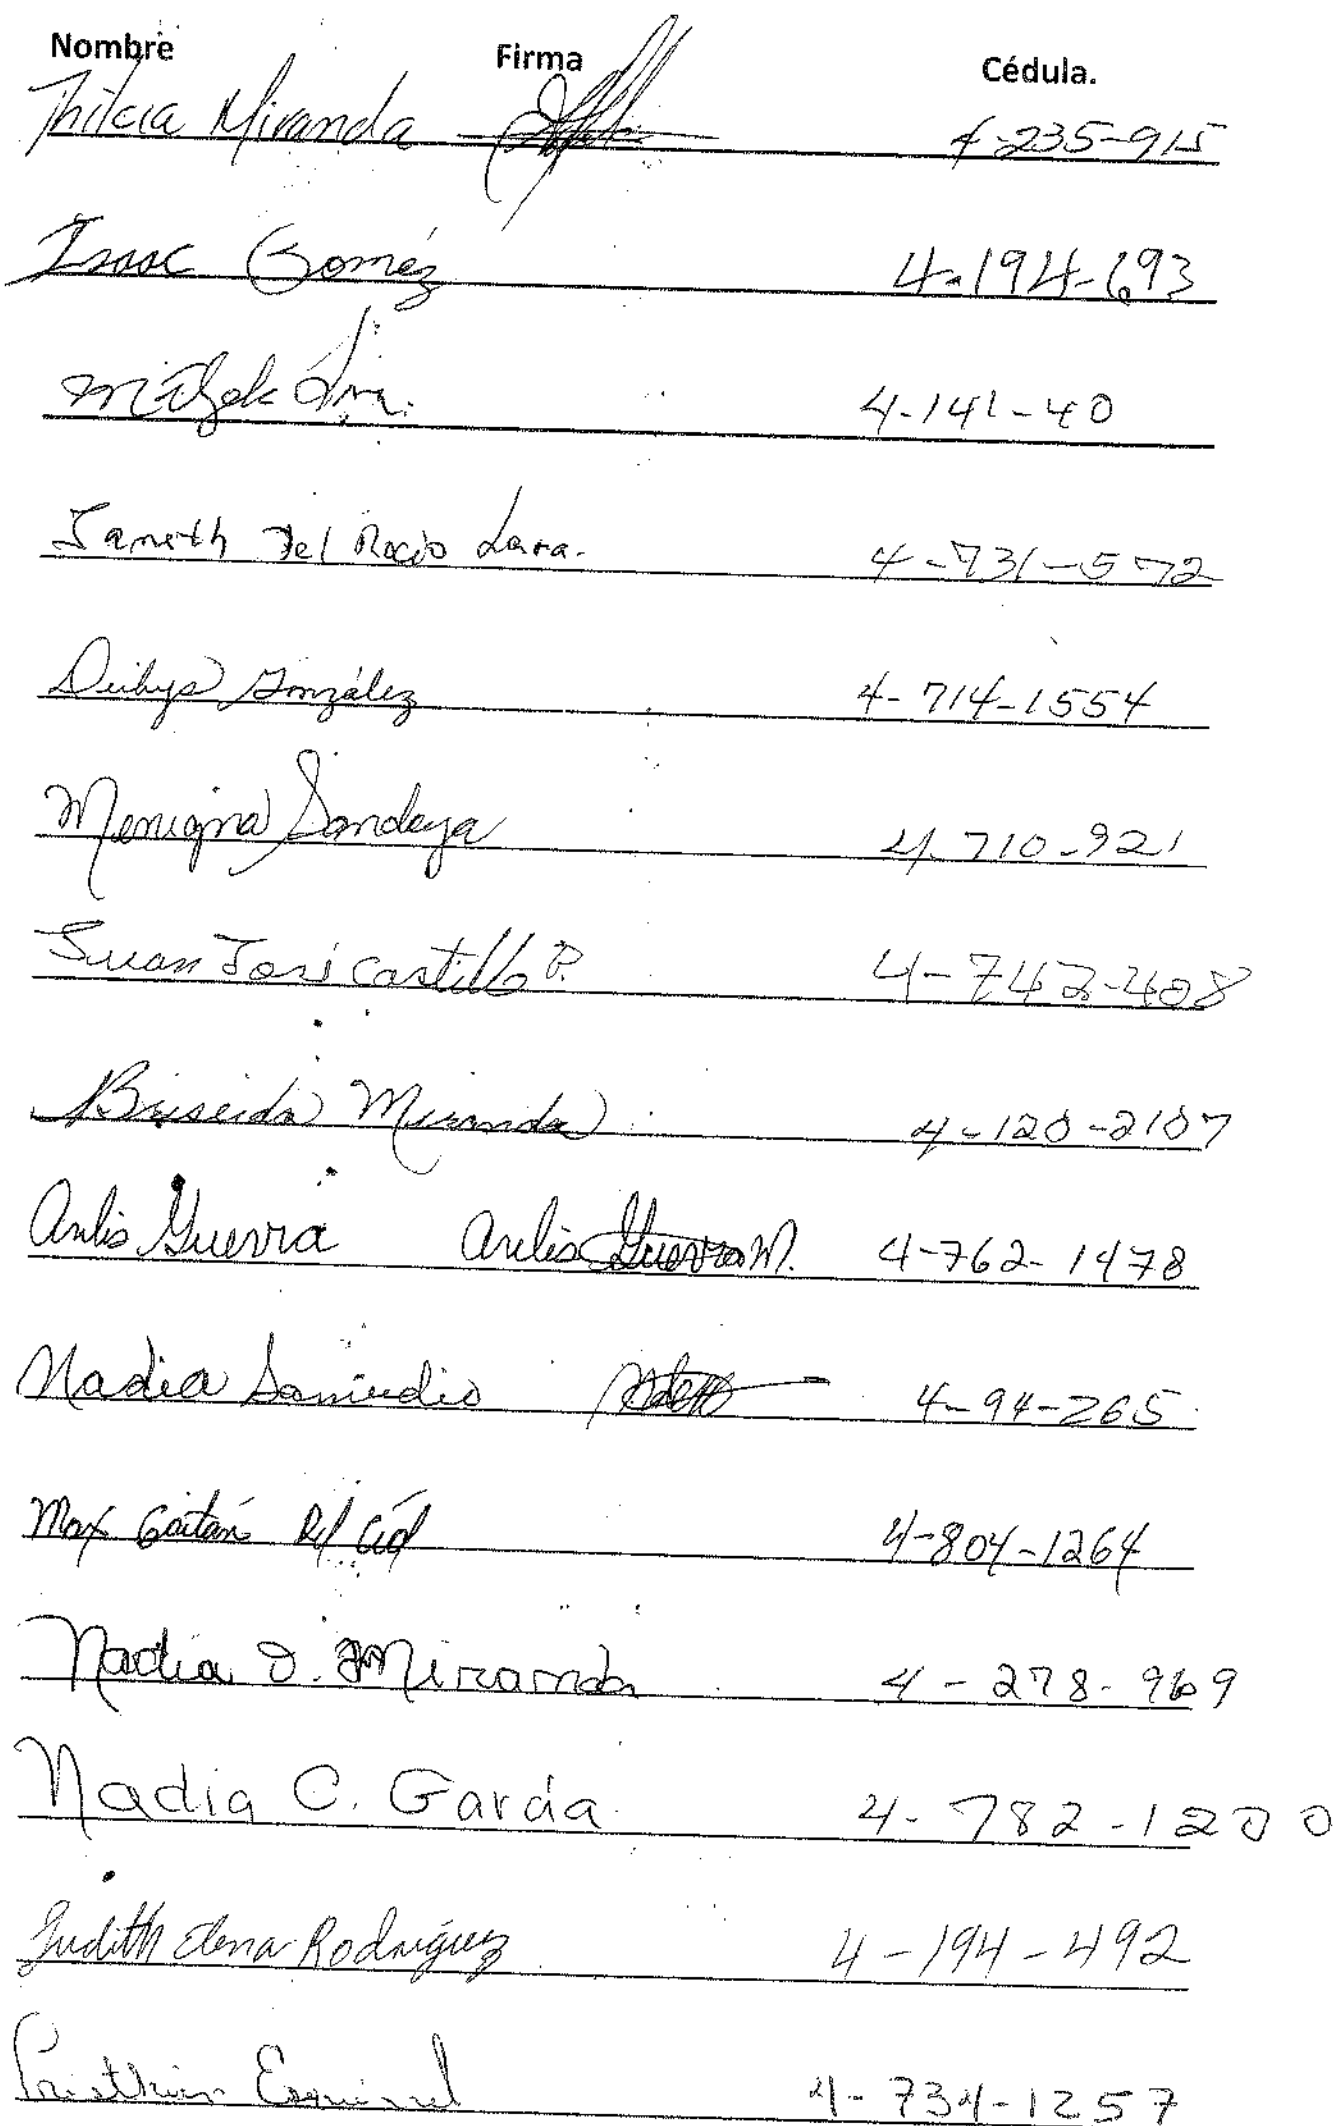 Nombre Firma Cédula.
Thilcia Miranda 4-235-915
Isaac Goméz 4-194-693
4-141-40
Janeth Del Rocío Lara. 4-731-572
Deibys González 4-714-1554
Sandoya 4-710-921
Juan José Castillo P. 4-742-408
Briseida Miranda 4-120-2107
Arelis Guerra Arelis Guerra M. 4-762-1478
Nadia Samudio 4-94-265
Max Gaitán Del Cid 4-804-1264
Nadia D. Miranda 4-278-969
Nadia C. García 4-782-1200
Judith Elena Rodríguez 4-194-492
Cristhian Esquivel 4-734-1257